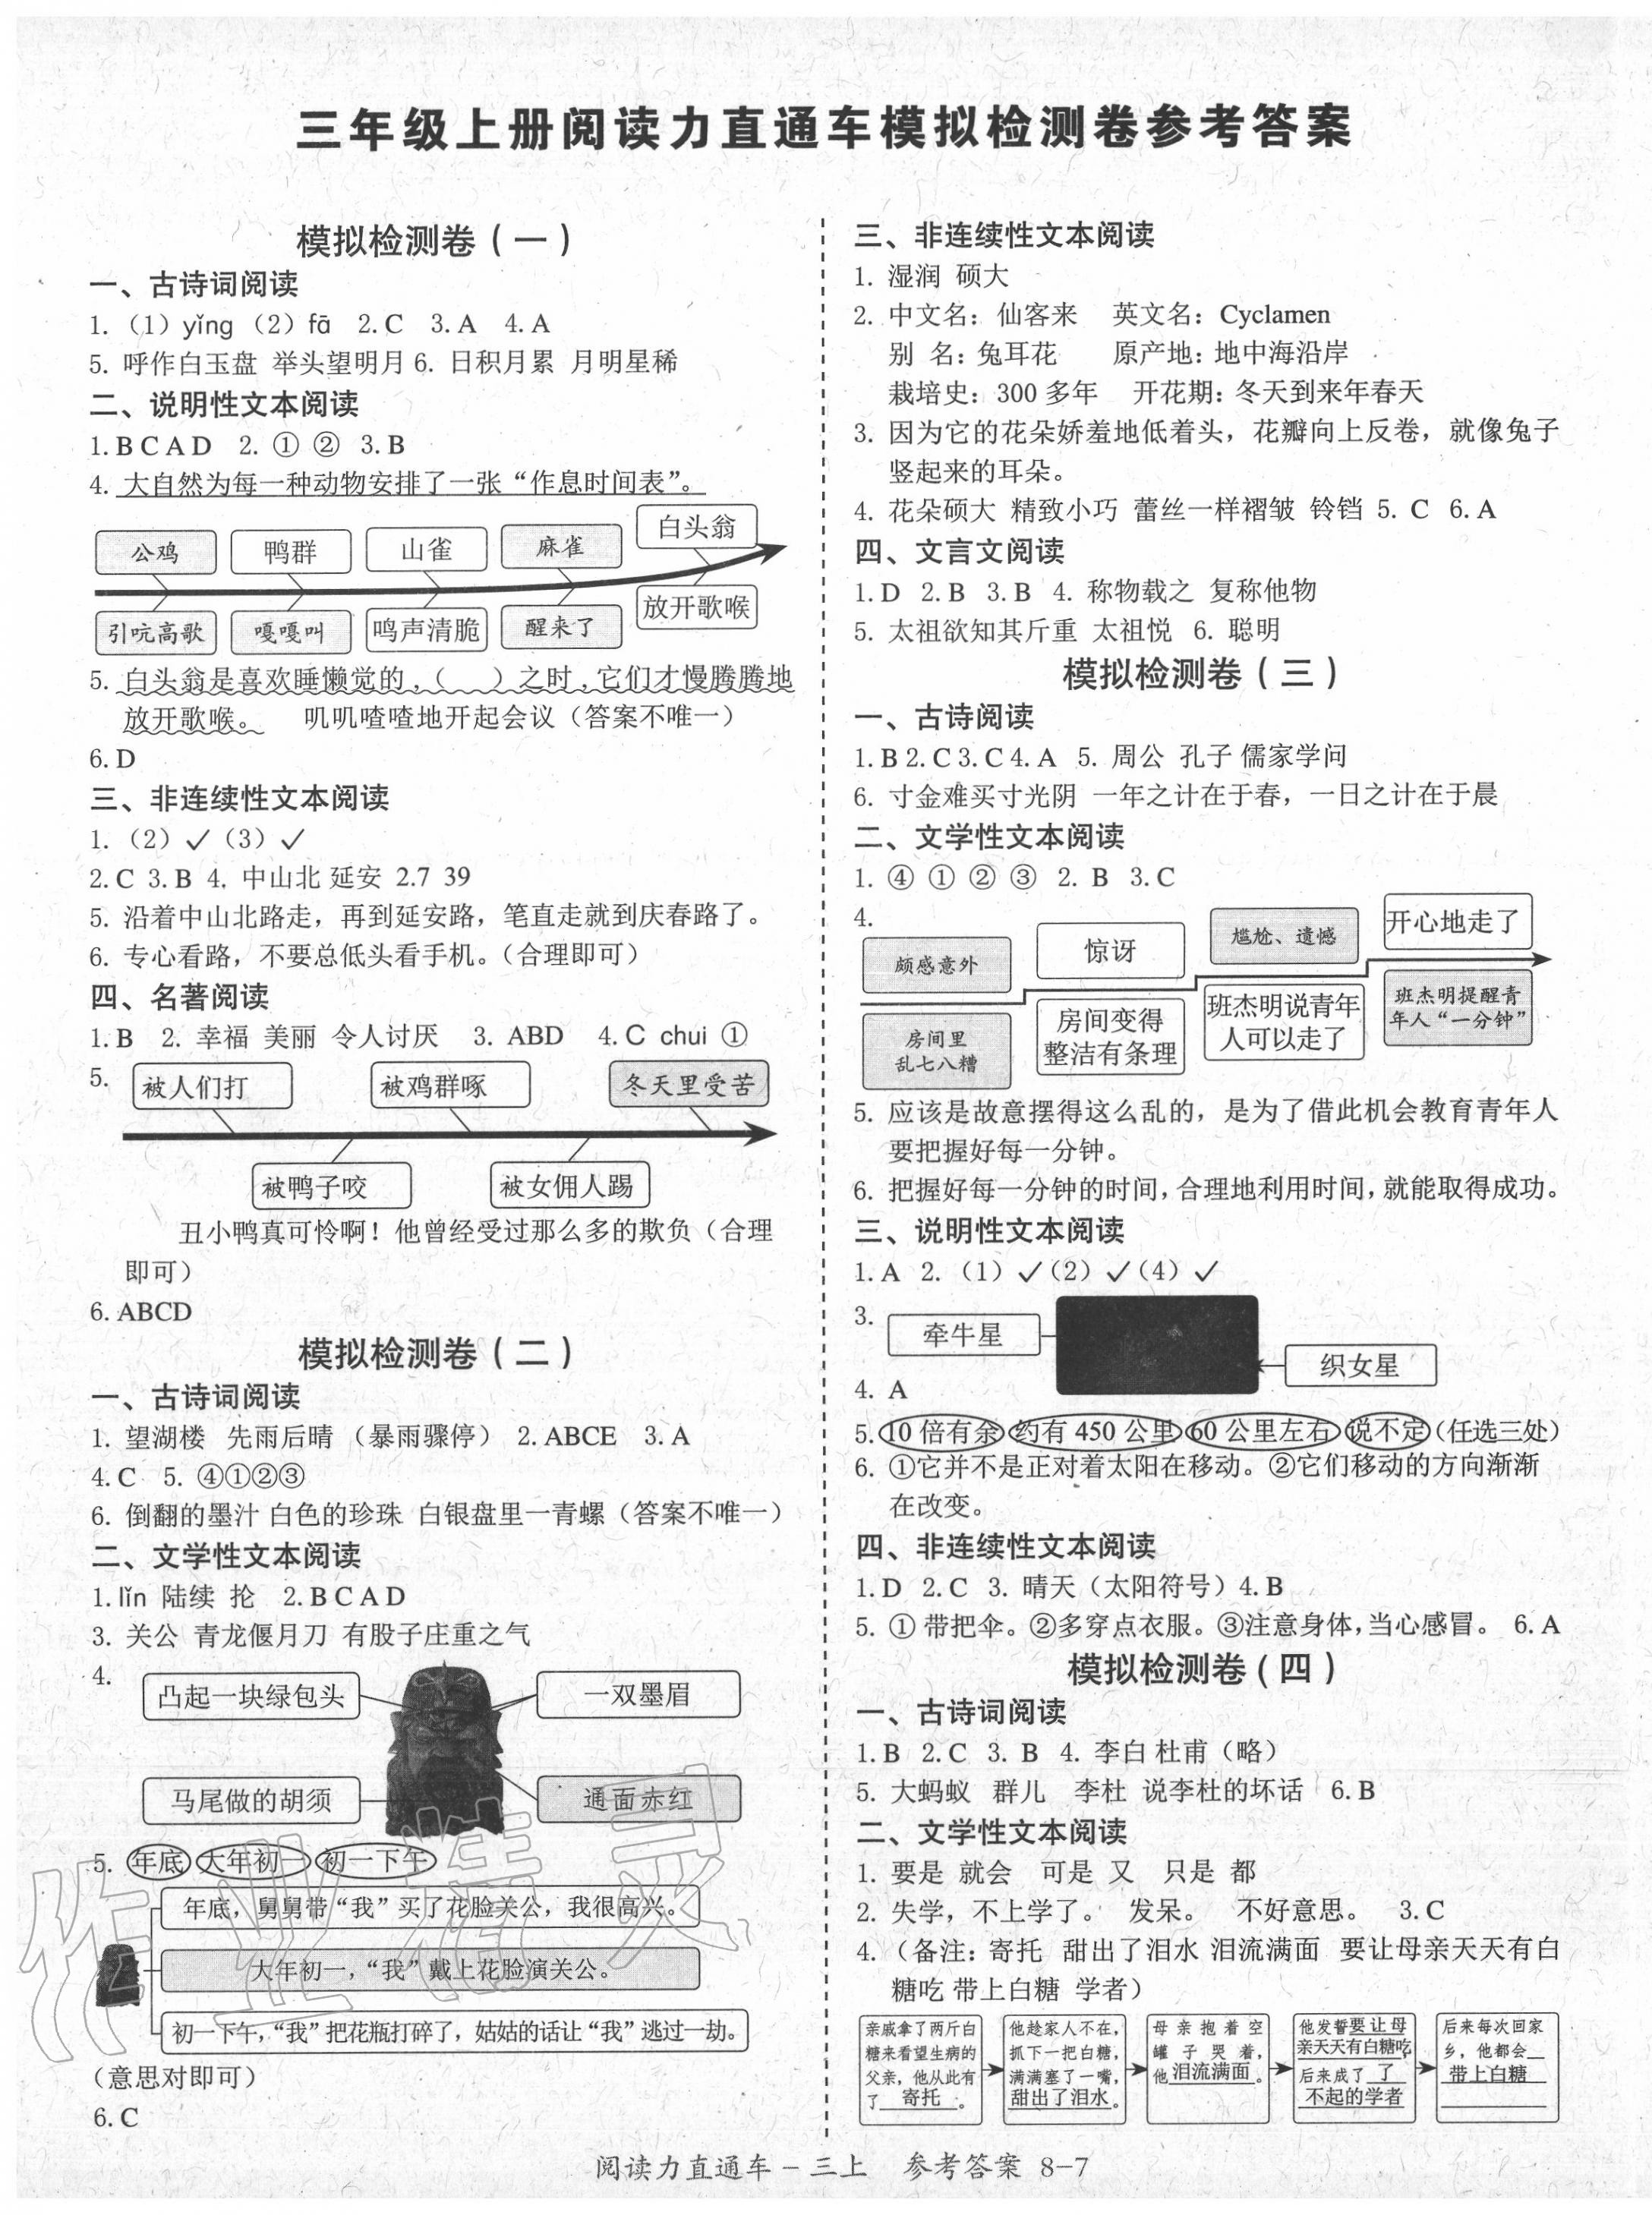 三年级上册阅读力直通车模拟检测卷参考答案
模拟检测卷（一）
一、古诗词阅读
1.（1）yǐng（2）fā 2.C 3.A 4.A
5. 呼作白玉盘 举头望明月 6. 日积月累 月明星稀
二、说明性文本阅读
1.B C A D 2. ① ② 3.B
4. 大自然为每一种动物安排了一张“作息时间表”。
公鸡 鸭群 山雀 麻雀 白头翁
引吭高歌 嘎嘎叫 鸣声清脆 醒来了 放开歌喉
5. 白头翁是喜欢睡懒觉的，（ ）之时，它们才慢腾腾地
放开歌喉。 叽叽喳喳地开起会议（答案不唯一）
6.D
三、非连续性文本阅读
1.（2）✓（3）✓
2.C 3.B 4. 中山北 延安 2.7 39
5. 沿着中山北路走，再到延安路，笔直走就到庆春路了。
6. 专心看路，不要总低头看手机。（合理即可）
四、名著阅读
1.B 2. 幸福 美丽 令人讨厌 3. ABD 4.C chui ①
5. 被人们打 被鸡群啄 冬天里受苦
被鸭子咬 被女佣人踢
丑小鸭真可怜啊！他曾经受过那么多的欺负（合理
即可）
6.ABCD
模拟检测卷（二）
一、古诗词阅读
1. 望湖楼 先雨后晴（暴雨骤停） 2.ABCE 3.A
4.C 5. ④①②③
6. 倒翻的墨汁 白色的珍珠 白银盘里一青螺（答案不唯一）
二、文学性文本阅读
1.lǐn 陆续 抡 2.B C A D
3. 关公 青龙偃月刀 有股子庄重之气
4.
凸起一块绿包头 一双墨眉
马尾做的胡须 通面赤红
5. 年底 大年初一 初一下午
年底，舅舅带“我”买了花脸关公，我很高兴。
大年初一，“我”戴上花脸演关公。
初一下午，“我”把花瓶打碎了，姑姑的话让“我”逃过一劫。
（意思对即可）
6.C
三、非连续性文本阅读
1. 湿润 硕大
2. 中文名：仙客来 英文名：Cyclamen
别 名：兔耳花 原产地：地中海沿岸
栽培史：300 多年 开花期：冬天到来年春天
3. 因为它的花朵娇羞地低着头，花瓣向上反卷，就像兔子
竖起来的耳朵。
4. 花朵硕大 精致小巧 蕾丝一样褶皱 铃铛 5. C 6.A
四、文言文阅读
1.D 2.B 3.B 4. 称物载之 复称他物
5. 太祖欲知其斤重 太祖悦 6. 聪明
模拟检测卷（三）
一、古诗阅读
1.B 2.C 3.C 4.A 5. 周公 孔子 儒家学问
6. 寸金难买寸光阴 一年之计在于春，一日之计在于晨
二、文学性文本阅读
1. ④ ① ② ③ 2. B 3.C
4.
颇感意外 惊讶 尴尬、遗憾 开心地走了
房间里
乱七八糟
房间变得
整洁有条理
班杰明说青年
人可以走了
班杰明提醒青
年人“一分钟”
5. 应该是故意摆得这么乱的，是为了借此机会教育青年人
要把握好每一分钟。
6. 把握好每一分钟的时间，合理地利用时间，就能取得成功。
三、说明性文本阅读
1.A 2.（1）✓（2）✓（4）✓
3.
牵牛星
织女星
4. A
5. 10 倍有余 约有 450 公里 60 公里左右 说不定（任选三处）
6. ①它并不是正对着太阳在移动。②它们移动的方向渐渐
在改变。
四、非连续性文本阅读
1.D 2.C 3. 晴天（太阳符号）4.B
5. ① 带把伞。②多穿点衣服。③注意身体，当心感冒。 6.A
模拟检测卷（四）
一、古诗词阅读
1.B 2.C 3. B 4. 李白 杜甫（略）
5. 大蚂蚁 群儿 李杜 说李杜的坏话 6.B
二、文学性文本阅读
1. 要是 就会 可是 又 只是 都
2. 失学，不上学了。 发呆。 不好意思。 3.C
4.（备注：寄托 甜出了泪水 泪流满面 要让母亲天天有白
糖吃 带上白糖 学者）
亲戚拿了两斤白
糖来看望生病的
父亲，他从此有
了 寄托 。
他趁家人不在，
抓下一把白糖，
满满塞了一嘴，
甜出了泪水。
母亲抱着空
罐子哭着，
他泪流满面。
他发誓要让母
亲天天有白糖吃
后来成了 了
不起的学者
后来每次回家
乡，他都会
带上白糖
阅读力直通车－三上 参考答案 8－7
作业精灵